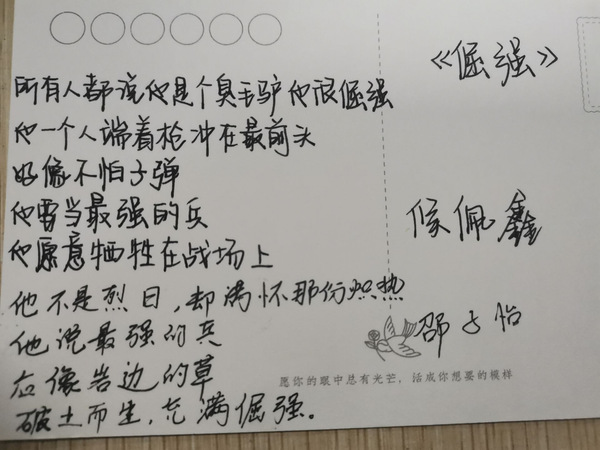 《倔强》
所有人都说他是个臭毛驴他很倔强
他一个人端着枪冲在最前头
好像不怕子弹
他要当最强的兵
他愿意牺牲在战场上
他不是烈日，却满怀那份炽热
他说最强的兵
应像岩边的草
破土而生，充满倔强。
侯佩鑫
邵子怡
愿你的眼中总有光芒，活成你想要的模样